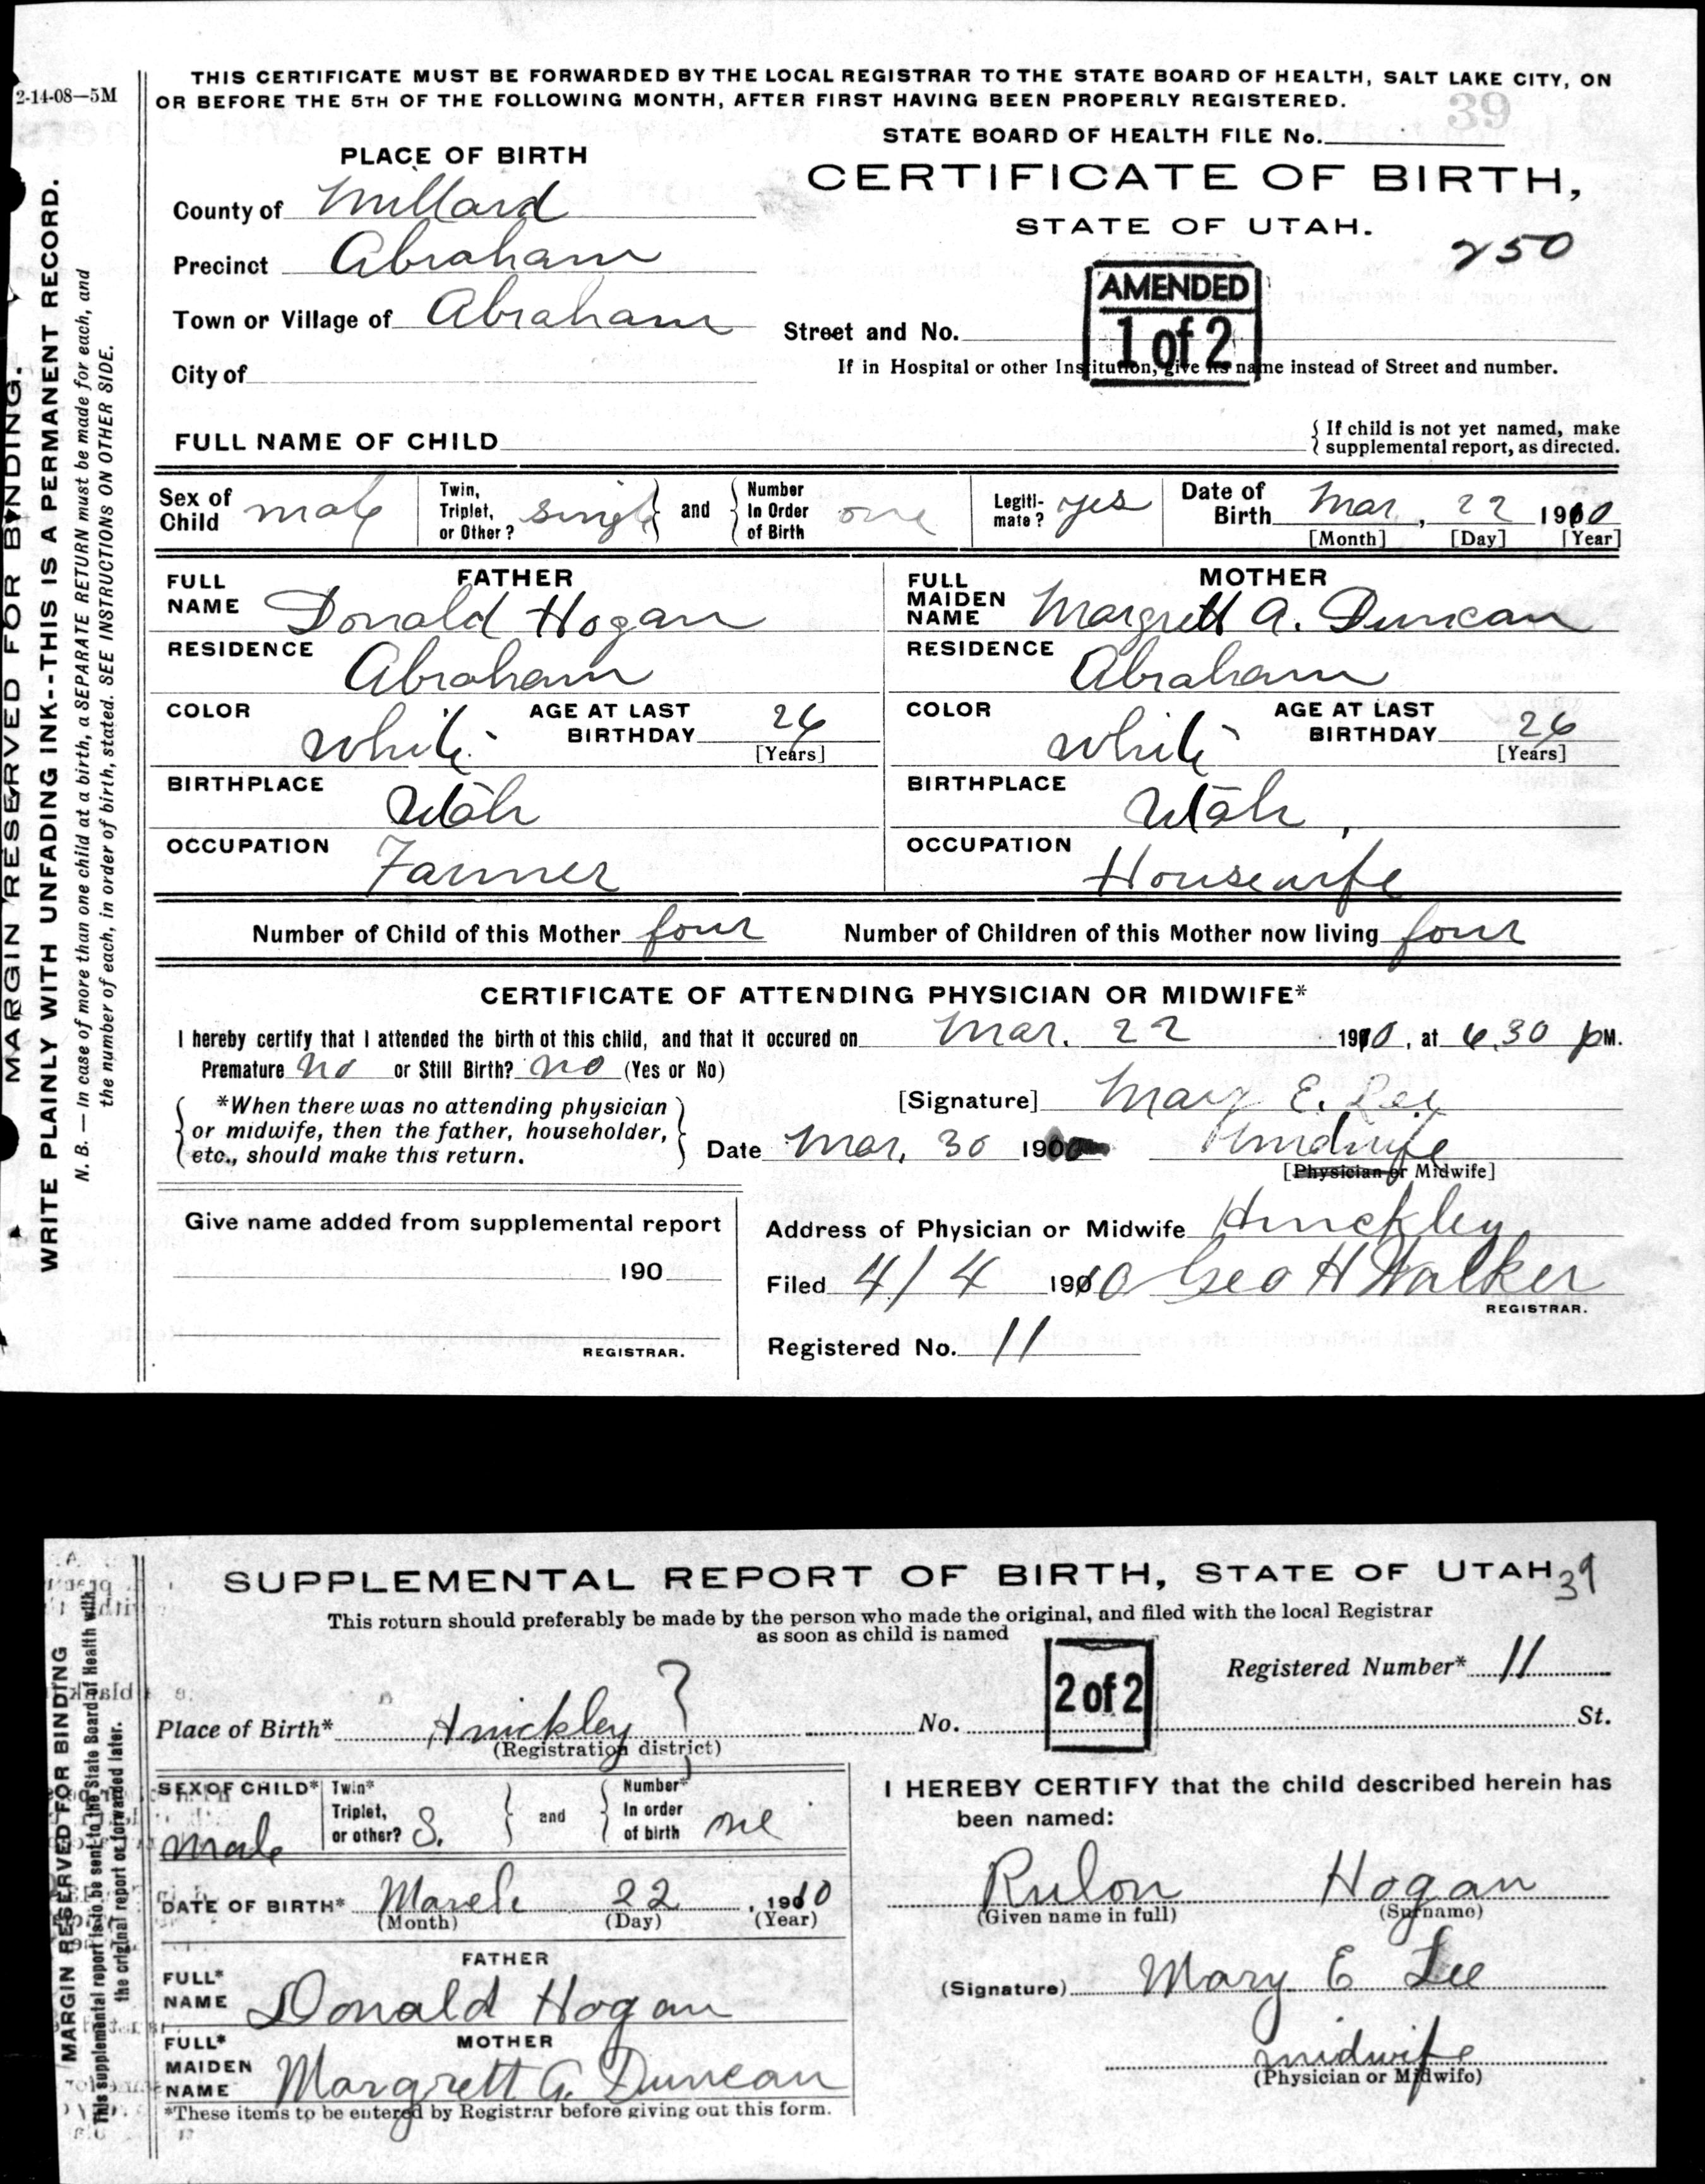 2-14-08—5M
THIS CERTIFICATE MUST BE FORWARDED BY THE LOCAL REGISTRAR TO THE STATE BOARD OF HEALTH, SALT LAKE CITY, ON
OR BEFORE THE 5TH OF THE FOLLOWING MONTH, AFTER FIRST HAVING BEEN PROPERLY REGISTERED.
39
STATE BOARD OF HEALTH FILE No.
PLACE OF BIRTH
CERTIFICATE OF BIRTH,
STATE OF UTAH.
250
County of Millard
Precinct Abraham
Town or Village of Abraham
City of
AMENDED
1 of 2
Street and No.
If in Hospital or other Institution, give its name instead of Street and number.
FULL NAME OF CHILD
If child is not yet named, make
supplemental report, as directed.
Sex of Child male Twin, Triplet, or Other? single and Number In Order of Birth one Legiti-mate? yes Date of Birth Mar, 22 1910
[Month] [Day] [Year]
FATHER
FULL NAME Donald Hogan
RESIDENCE Abraham
COLOR white AGE AT LAST BIRTHDAY 26 [Years]
BIRTHPLACE Utah
OCCUPATION Farmer
MOTHER
FULL MAIDEN NAME Margrett A. Duncan
RESIDENCE Abraham
COLOR white AGE AT LAST BIRTHDAY 26 [Years]
BIRTHPLACE Utah
OCCUPATION Housewife
Number of Child of this Mother four Number of Children of this Mother now living four
CERTIFICATE OF ATTENDING PHYSICIAN OR MIDWIFE*
I hereby certify that I attended the birth ot this child, and that it occured on Mar. 22 1910, at 6.30 PM.
Premature No or Still Birth? no (Yes or No)
*When there was no attending physician
or midwife, then the father, householder,
etc., should make this return.
[Signature] Mary E. Lee
Date Mar, 30 190 midwife
[Physician or Midwife]
Give name added from supplemental report
190
REGISTRAR.
Address of Physician or Midwife Hinckley
Filed 4/4 1910 Geo H Walker
REGISTRAR.
Registered No. 11
MARGIN RESERVED FOR BINDING.
WRITE PLAINLY WITH UNFADING INK--THIS IS A PERMANENT RECORD.
N. B. — In case of more than one child at a birth, a SEPARATE RETURN must be made for each, and
the number of each, in order of birth, stated. SEE INSTRUCTIONS ON OTHER SIDE.
SUPPLEMENTAL REPORT OF BIRTH, STATE OF UTAH
39
This return should preferably be made by the person who made the original, and filed with the local Registrar
as soon as child is named
2 of 2
Registered Number* 11
Place of Birth* Hinckley ? No. St.
(Registration district)
SEX OF CHILD* male Twin* Triplet, or other? S. and Number* In order of birth one
DATE OF BIRTH* March 22, 1910
(Month) (Day) (Year)
FATHER
FULL* NAME Donald Hogan
MOTHER
FULL* MAIDEN NAME Margrett A. Duncan
*These items to be entered by Registrar before giving out this form.
I HEREBY CERTIFY that the child described herein has
been named:
Rulon Hogan
(Given name in full) (Surname)
(Signature) Mary E Lee
midwife
(Physician or Midwife)
MARGIN RESERVED FOR BINDING
This supplemental report is to be sent to the State Board of Health with
the original report or forwarded later.